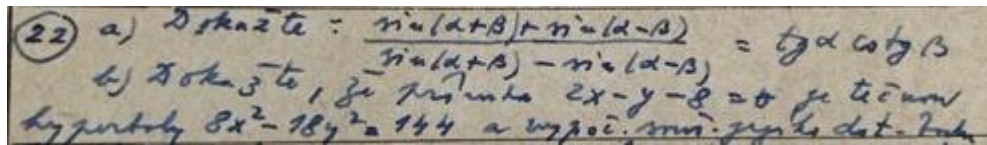 22 a) Dokažte : sin(α+β)+sin(α-β) / sin(α+β)-sin(α-β) = tgα cotgβ
b) Dokažte, že přímka 2x-y-8=0 je tečnou
hyperboly 8x²-18y²=144 a vypoč. souř. jejího dot. bodu